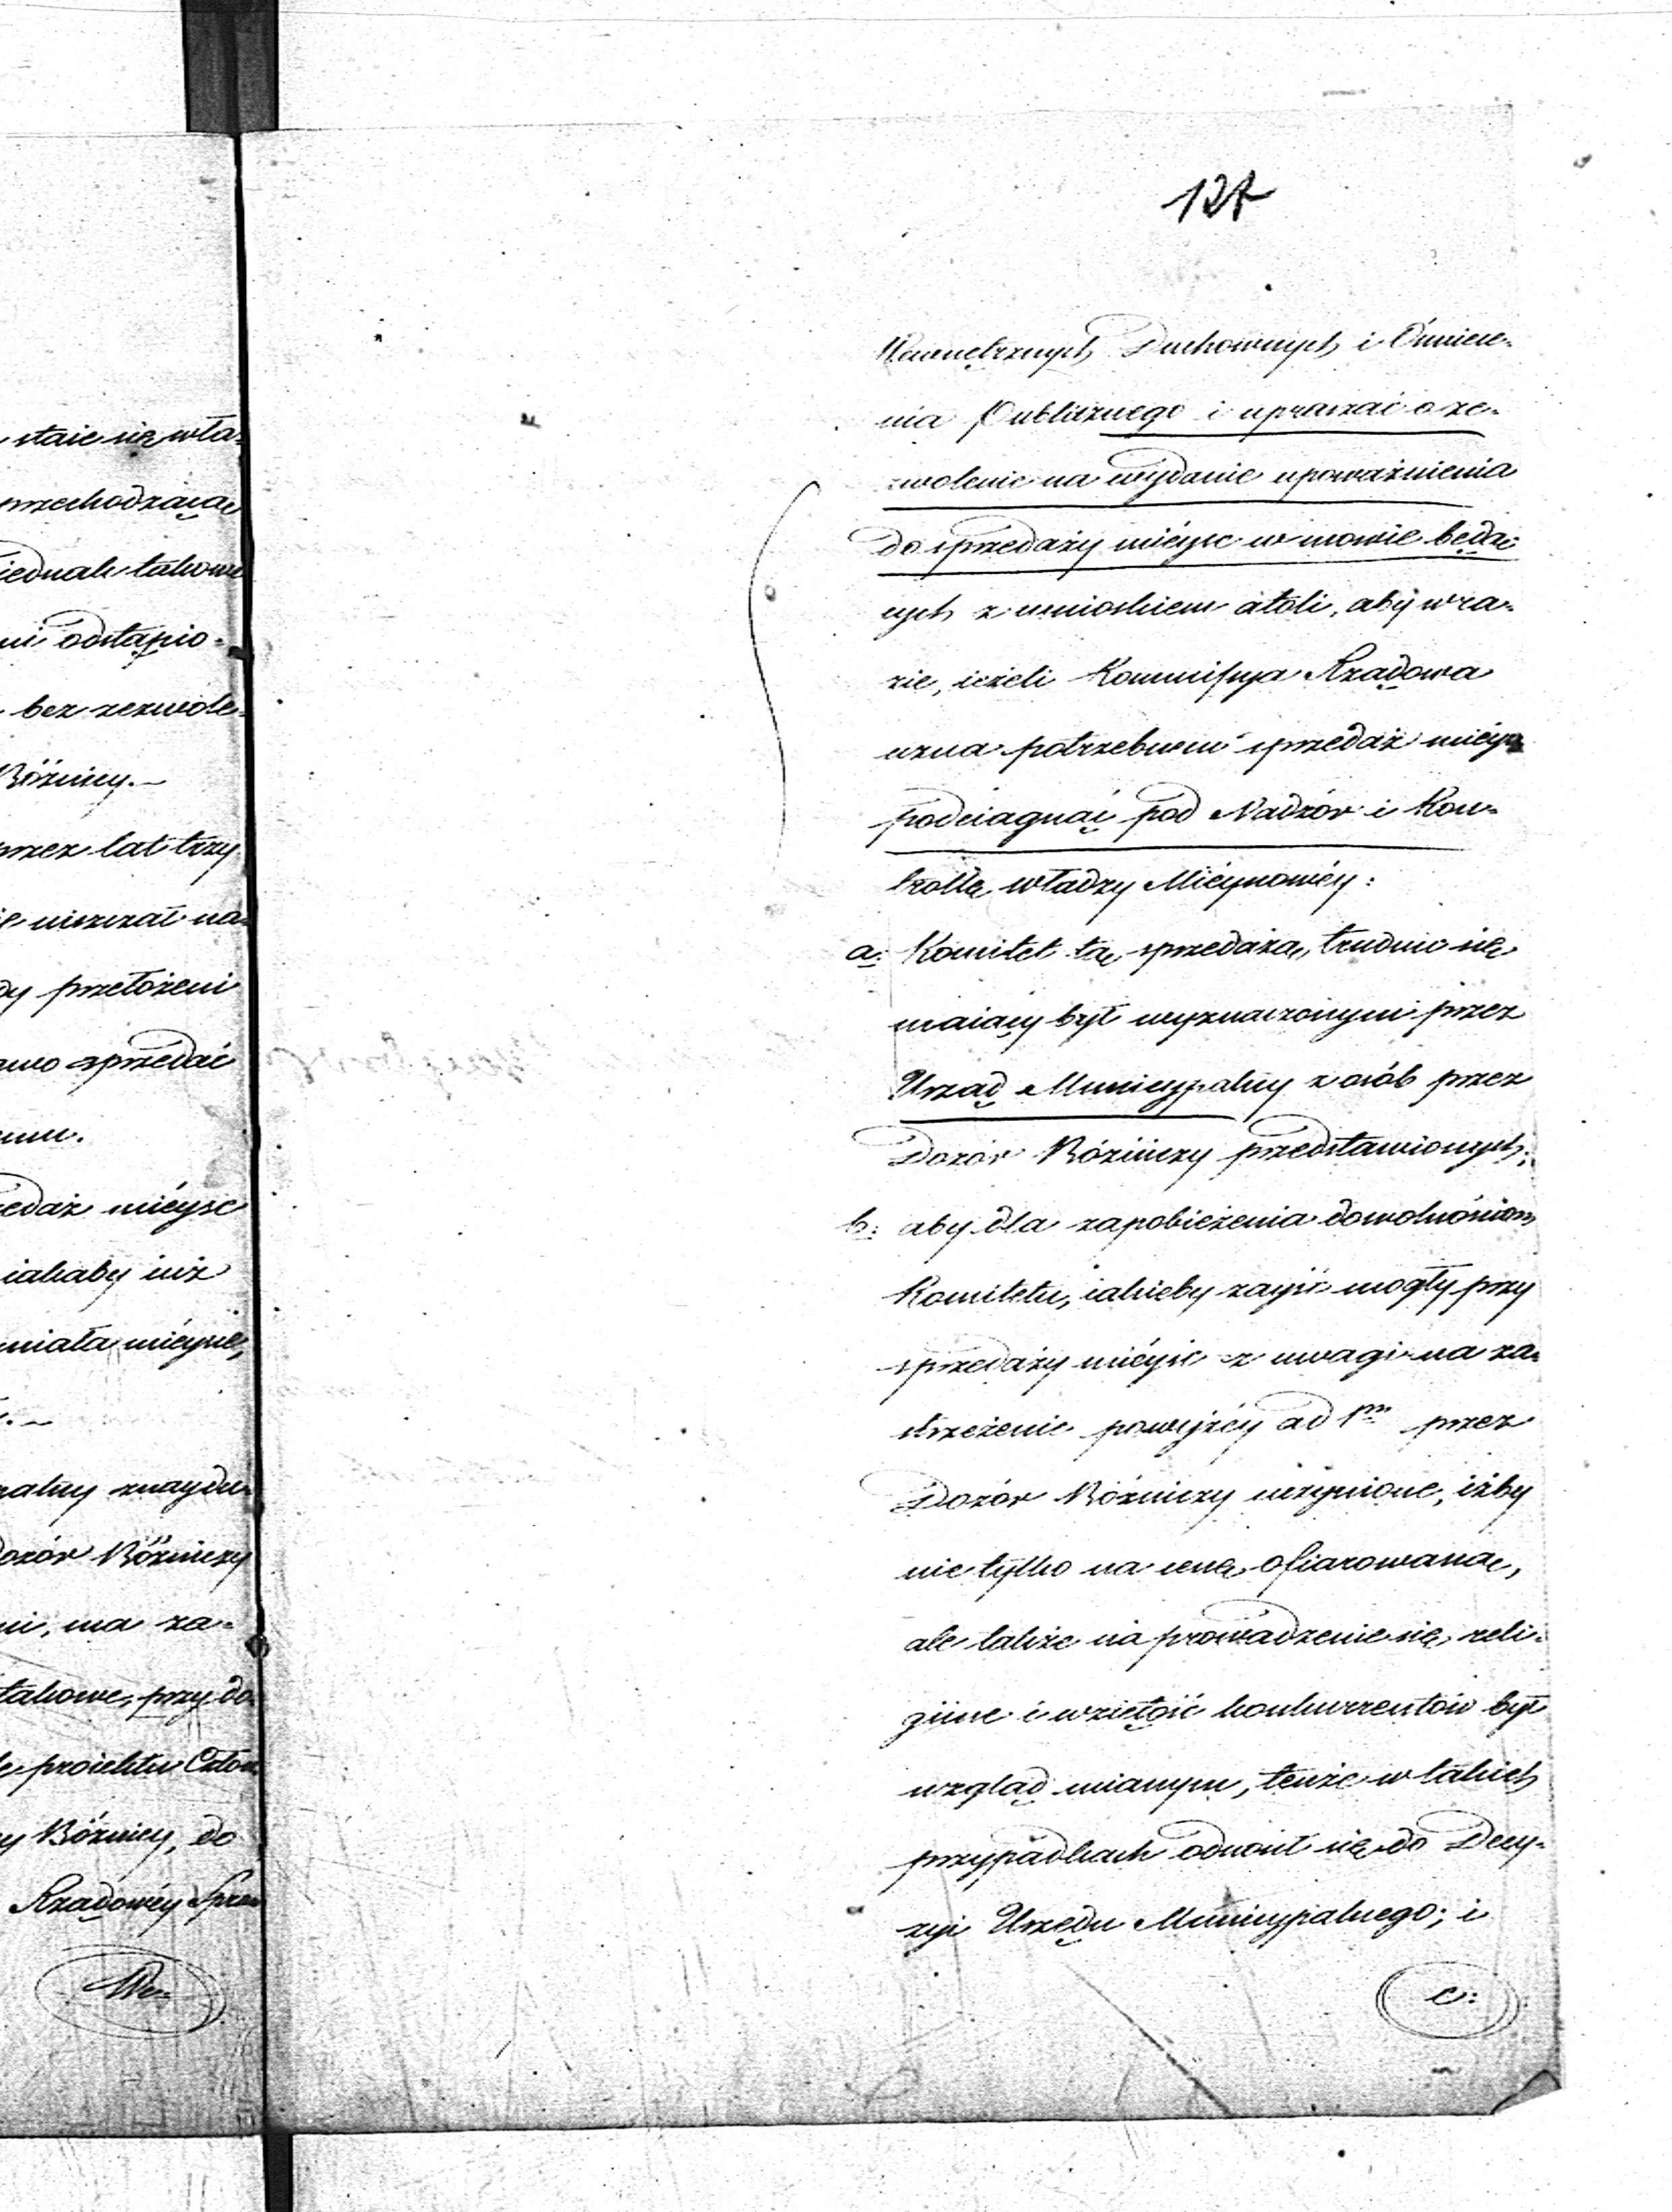 staie się wła=
przechodzącą
iednak takowe
mi odstąpio=
bez zezwole=
Bóżnicy.—
przez lat trzy
ie uiszczał na=
dy przełożeni
awo sprzedać
emu.
zedaż mieysc
iakaby iuż
miała mieysce,
alny znaydu=
Dozór Bóżniczy
ni, ma za=
takowe, przy do=
le proiektu Człon
y Bóżnicy, do
Rządowéy Spraw
We=
127
Wewnętrznych Duchownych i Oświece=
nia Publicznego i upraszać o ze=
zwolenie na wydanie upoważnienia
do sprzedaży mieysc w mowie będą=
cych z wnioskiem atoli, aby w ra=
zie, ieżeli Kommissya Rządowa
uzna potrzebnem sprzedaż mieysc
podciągnąć pod Nadzór i Kon=
trollę władzy Mieyscowéy:
a: Komitet tą sprzedażą trudnić się
maiący był wyznaczonym przez
Urząd Municypalny z osób przez
Dozór Bóżniczy przedstawionych;
b: aby dla zapobieżenia dowolnościom
Komitetu, iakieby zayść mogły przy
sprzedaży mieysc z uwagi na za=
strzeżenie powyżéy ad 1m przez
Dozór Bóżniczy uczynione, iżby
nie tylko na cenę ofiarowaną,
ale także na prowadzenie się reli=
giine i wziętość konkurrentów był
wzgląd mianym, tenże w takich
przypadkach odnosił się do Decy=
zyi Urzędu Municypalnego; i
c: